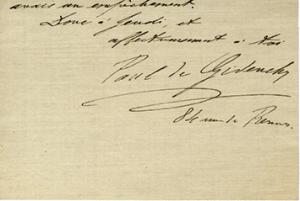 avais un empêchement.
Donc à jeudi, et
affectueusement à toi
Paul de
84 rue de Rennes.